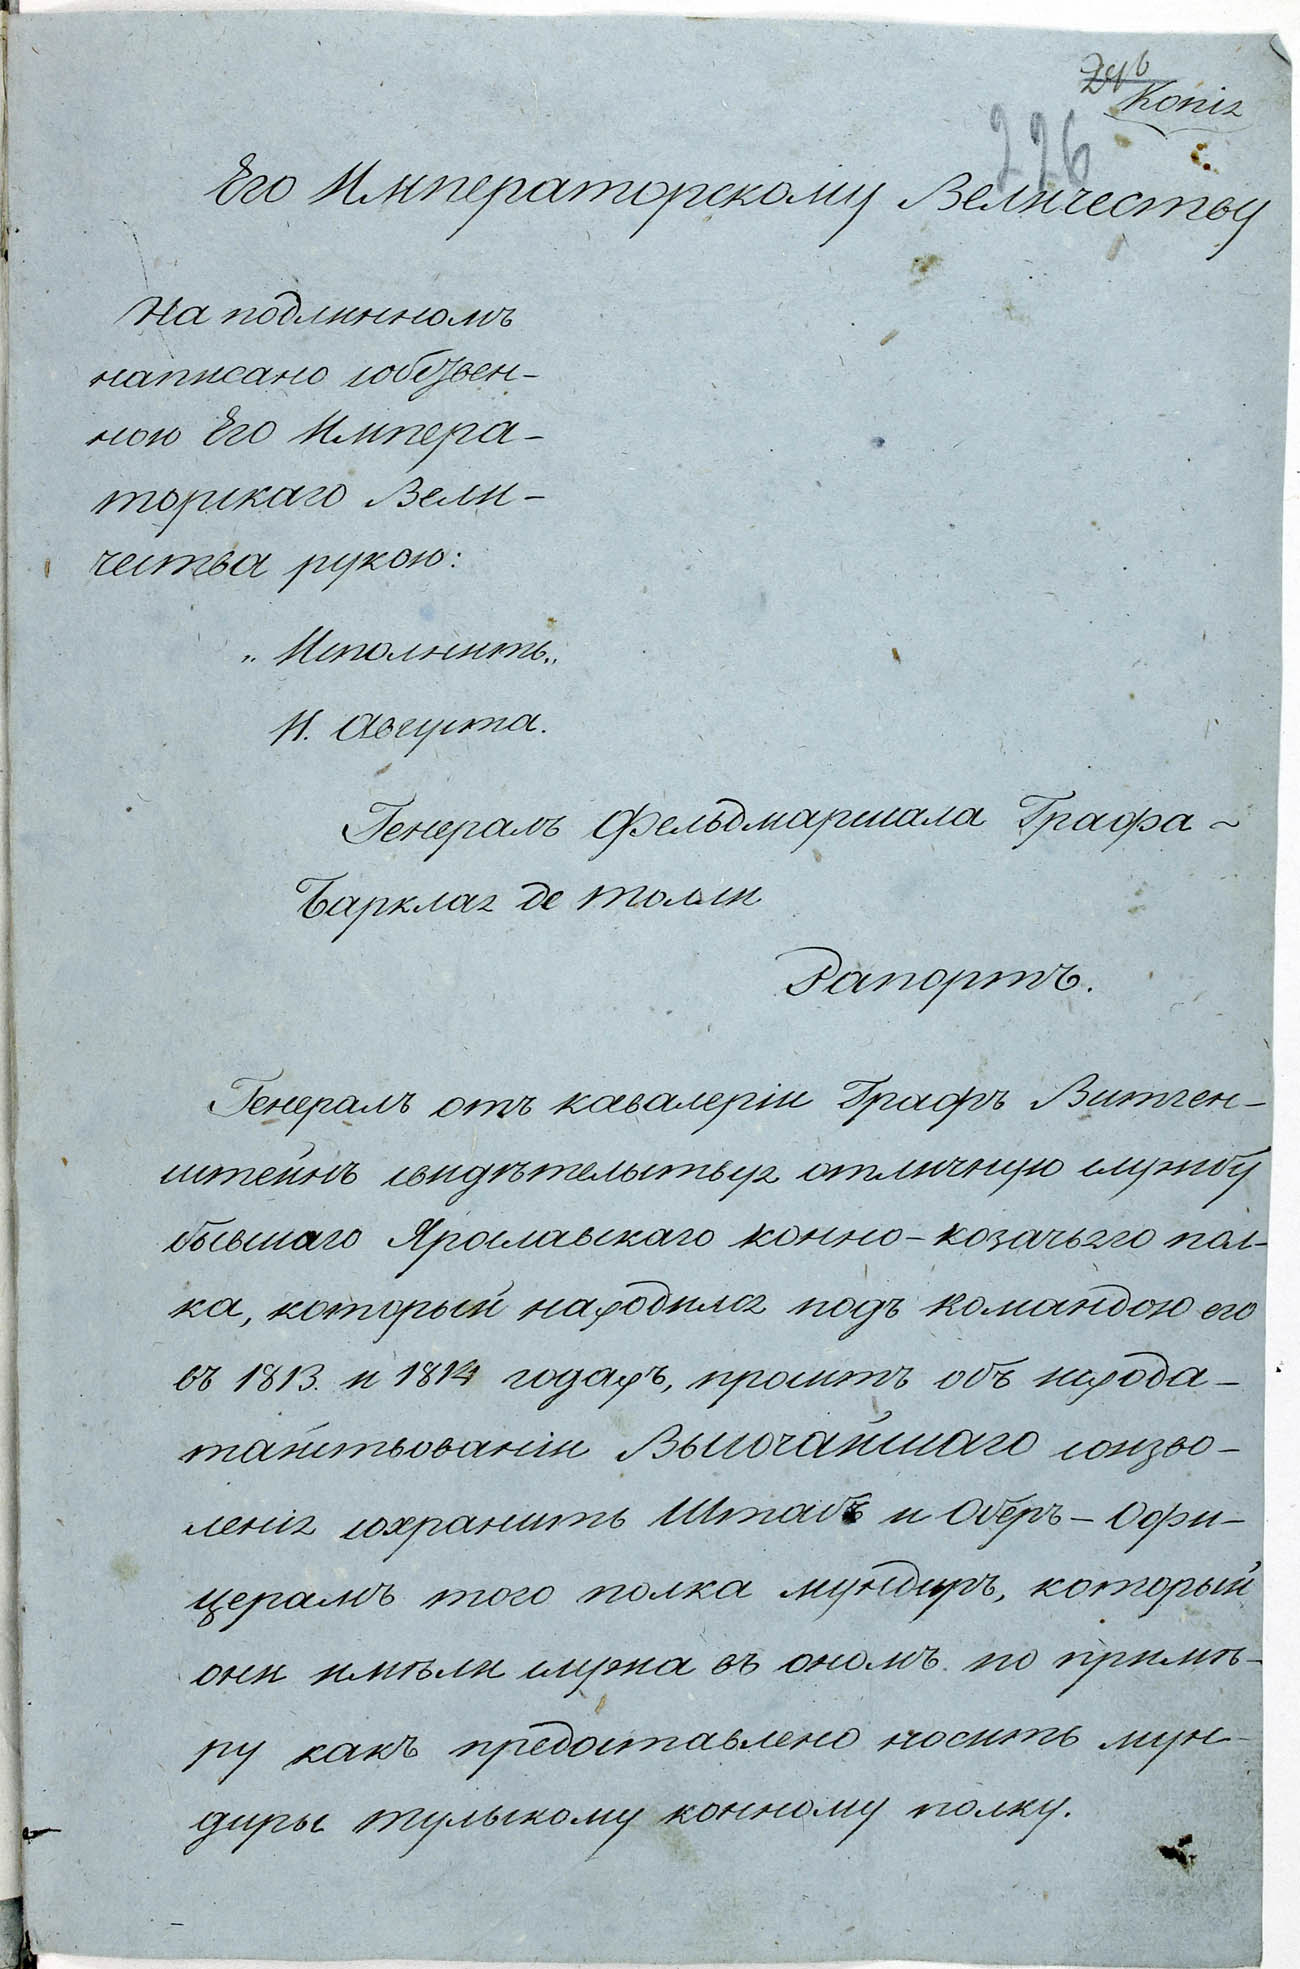 Копія
226
Его Императорскому Величеству
На подлинномъ
написано собствен-
ною Его Импера-
торскаго Вели-
чества рукою:
„Исполнить„
11. Августа.
Генералъ Фельдмаршала Графа
Барклая де Толли
Рапортъ.
Генералъ отъ кавалеріи Графъ Витген-
штейнъ свидѣтельствуя отличную службу
бывшаго Ярославскаго конно-козачьяго пол-
ка, который находился подъ командою его
въ 1813. и 1814 годахъ, проситъ объ исхода-
тайствованіи Высочайшаго соизво-
ленія сохранить Штабъ и Оберъ-Офи-
церамъ того полка мундиръ, который
они имѣли служа въ ономъ по примѣ-
ру какъ предоставлено носить мун-
диры тульскому конному полку.